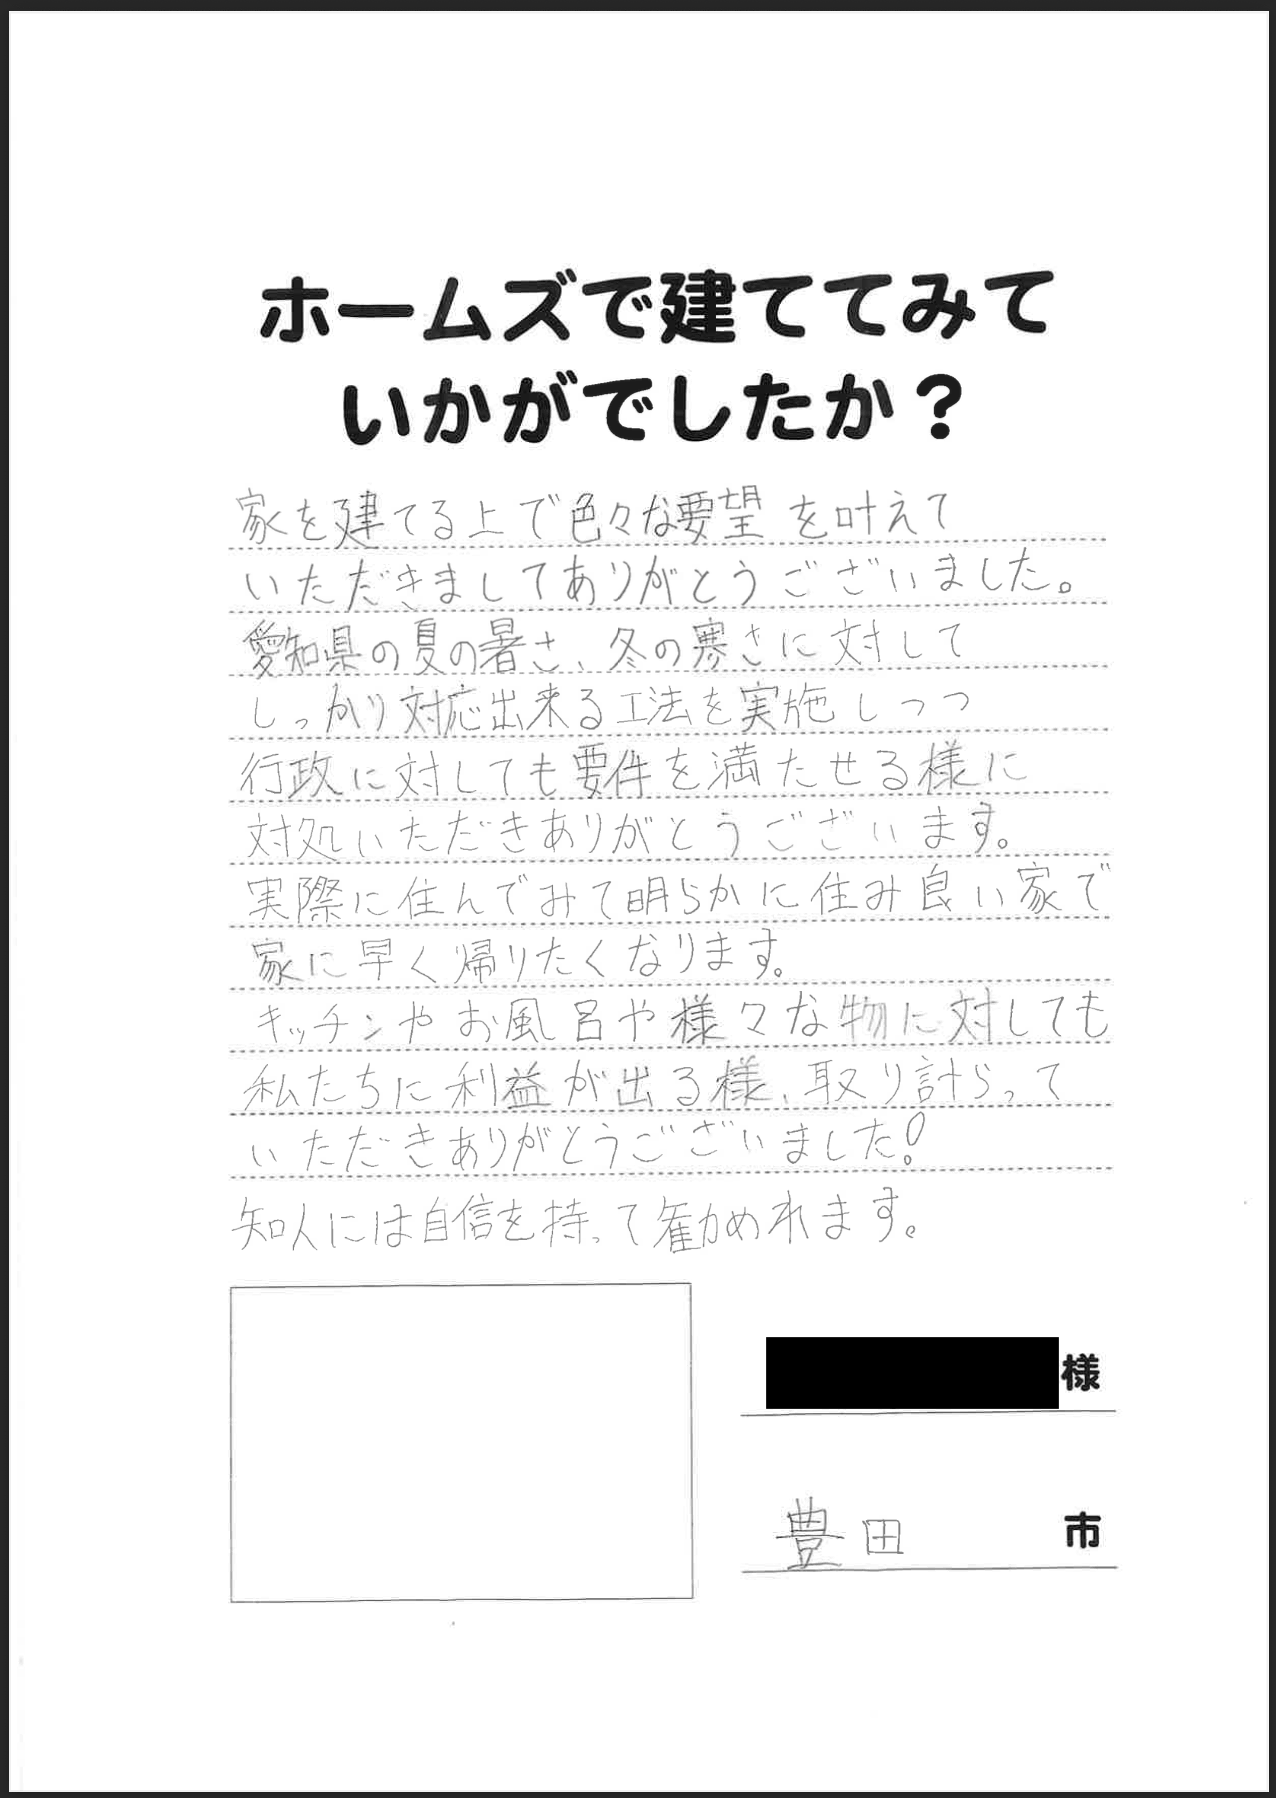 ホームズで建ててみて
いかがでしたか？
家を建てる上で色々な要望を叶えて
いただきましてありがとうございました。
愛知県の夏の暑さ、冬の寒さに対して
しっかり対応出来る工法を実施しつつ
行政に対しても要件を満たせる様に
対処いただきありがとうございます。
実際に住んでみて明らかに住み良い家で
家に早く帰りたくなります。
キッチンやお風呂や様々な物に対しても
私たちに利益が出る様、取り計らって
いただきありがとうございました！
知人には自信を持って勧めれます。
様
豊田 市